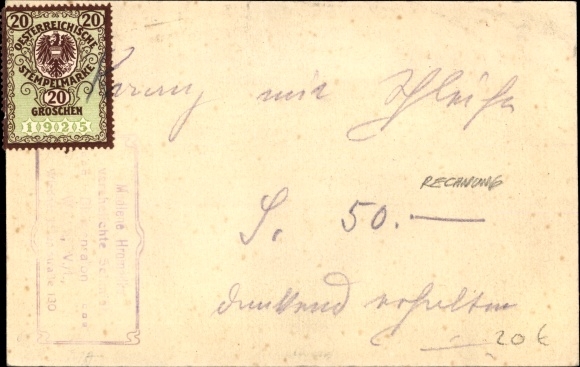 20 20
OESTERREICHISCHE
STEMPELMARKE
20
GROSCHEN
1925
Kranz mit Schleife
RECHNUNG
S. 50.—
dankend erhalten
20 €